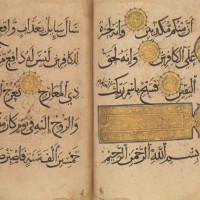 أن منكم مكذبين وإنه لحسرة
على الكافرين وإنه لحق
اليقين فسبح باسم ربك
بسم الله الرحمن الرحيم
سأل سائل بعذاب واقع
للكافرين ليس له دافع
ذي المعارج تعرج
والروح إليه في يوم كان
خمسين ألف سنة فاصبر